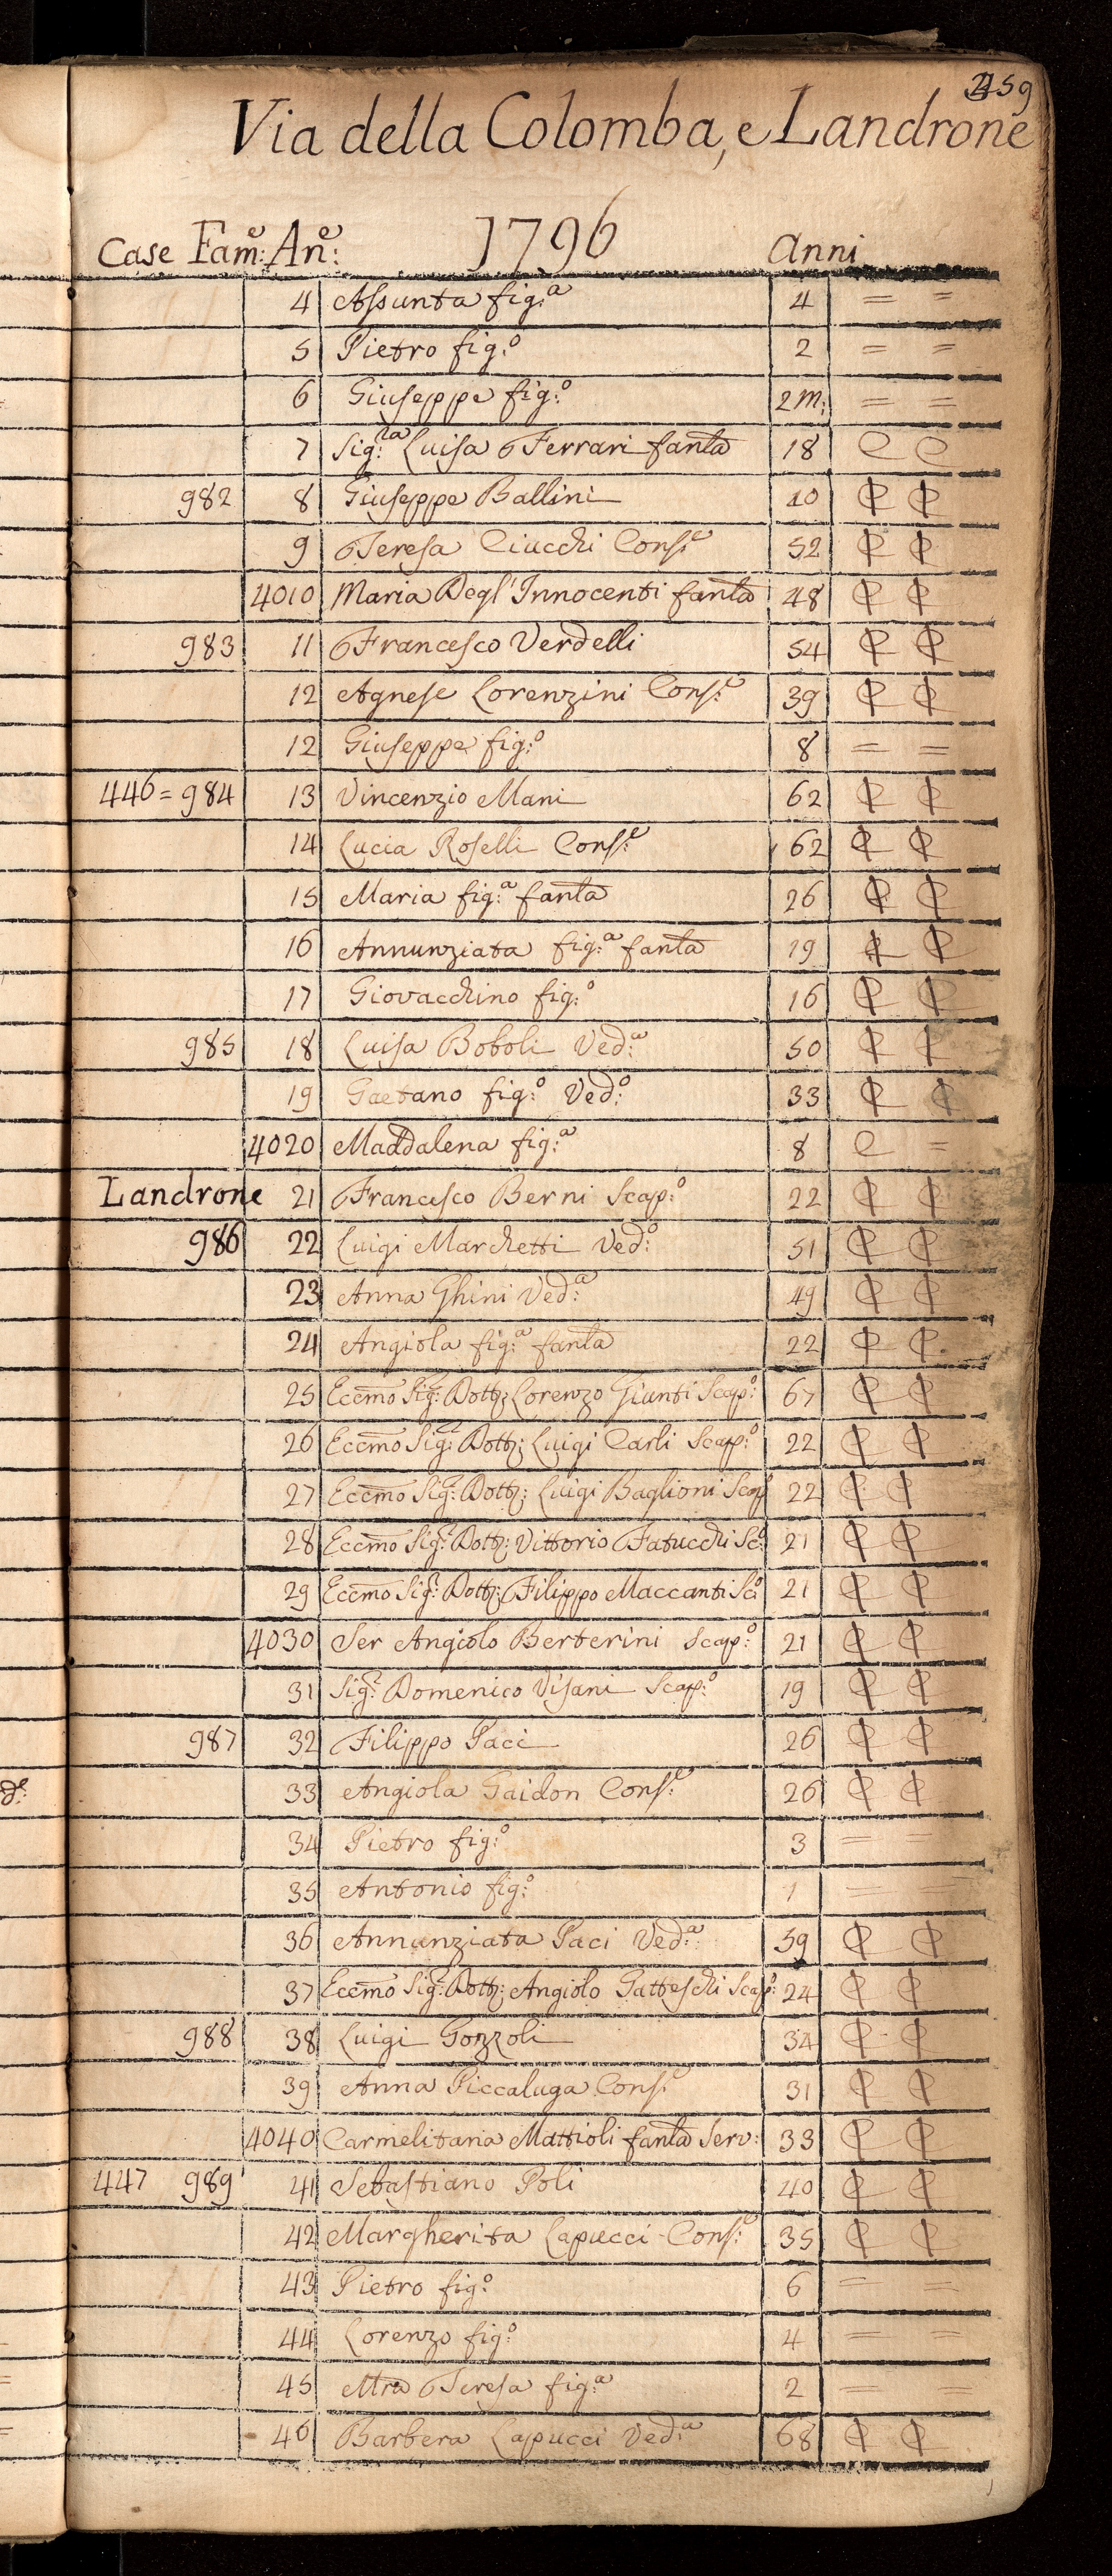 259
Via della Colomba, e Landrone
Case Fam:e An:e 1796 Anni
4 Assunta fig:a 4 = =
5 Pietro fig:o 2 = =
6 Giuseppe fig:o 2 m: = =
7 Sig:ra Luisa Ferrari fanla 18 C C
982 8 Giuseppe Ballini 40 ₵ ₵
9 Teresa Ciucchi Cons:e 52 ₵ ₵
4010 Maria Degl'Innocenti fanla 48 ₵ ₵
983 11 Francesco Verdelli 54 ₵ ₵
12 Agnese Lorenzini Cons:e 39 ₵ ₵
12 Giuseppe fig:o 8 = =
446 = 984 13 Vincenzio Mani 62 ₵ ₵
14 Lucia Roselli Cons:e 62 ₵ ₵
15 Maria fig:a fanla 26 ₵ ₵
16 Annunziata fig:a fanla 19 ₵ ₵
17 Giovacchino fig:o 16 ₵ ₵
985 18 Luisa Boboli Ved:a 50 ₵ ₵
19 Gaetano fig:o Ved:o 33 ₵ ₵
4020 Maddalena fig:a 8 C =
Landrone 21 Francesco Berni Scap:o 22 ₵ ₵
986 22 Luigi Marchetti Ved:o 51 ₵ ₵
23 Anna Ghini Ved:a 49 ₵ ₵
24 Angiola fig:a fanla 22 ₵ ₵
25 Eccmo Sig:r Dott: Lorenzo Giunti Scap:o 67 ₵ ₵
26 Eccmo Sig:r Dott: Luigi Carli Scap:o 22 ₵ ₵
27 Eccmo Sig:r Dott: Luigi Baglioni Scap 22 ₵ ₵
28 Eccmo Sig:r Dott: Vittorio Fatucchi Sc:o 21 ₵ ₵
29 Eccmo Sig:r Dott: Filippo Maccanti Sc:o 21 ₵ ₵
4030 Ser Angiolo Berterini Scap:o 21 ₵ ₵
31 Sig:r Domenico Visani Scap:o 19 ₵ ₵
987 32 Filippo Paci 26 ₵ ₵
33 Angiola Gaidon Cons:e 26 ₵ ₵
34 Pietro fig:o 3 =
35 Antonio fig:o 1 = =
36 Annunziata Paci Ved:a 59 ₵ ₵
37 Eccmo Sig:r Dott: Angiolo Gatteschi Scap:o 24 ₵ ₵
988 38 Luigi Gonzoli 34 ₵ ₵
39 Anna Piccaluga Cons:e 31 ₵ ₵
4040 Carmelitana Mattioli fanla Serv: 33 ₵ ₵
447 989 41 Sebastiano Poli 40 ₵ ₵
42 Margherita Lapucci Cons:e 35 ₵ ₵
43 Pietro fig:o 6 = =
44 Lorenzo fig:o 4 = =
45 Mra Teresa fig:a 2 = =
46 Barbera Lapucci Ved:a 68 ₵ ₵